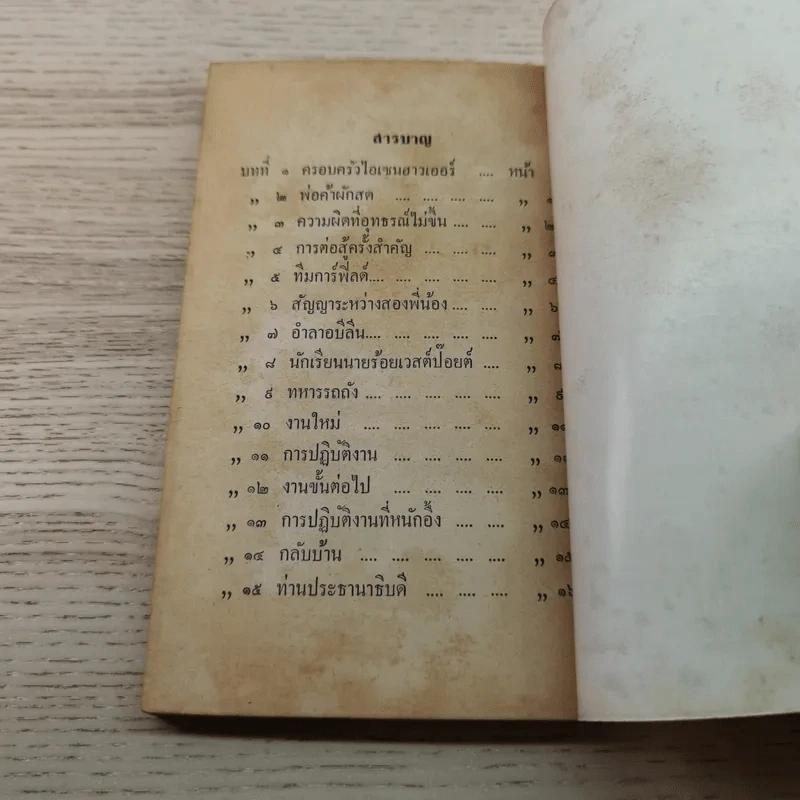 สารบาญ
บทที่ ๑ ครอบครัวไอเซนฮาวเออร์ .... หน้า
,, ๒ พ่อค้าผักสด .... .... .... .... ,,
,, ๓ ความผิดที่อุทธรณ์ไม่ขึ้น .... .... ,,
,, ๔ การต่อสู้ครั้งสำคัญ .... .... .... ,,
,, ๕ ทีมการ์ฟิลด์.... .... .... .... .... ,,
,, ๖ สัญญาระหว่างสองพี่น้อง .... .... ,,
,, ๗ อำลาอบีลีน.... .... .... .... .... ,,
,, ๘ นักเรียนนายร้อยเวสต์ป๊อยต์ .... ,,
,, ๙ ทหารรถถัง .... .... .... .... .... ,,
,, ๑๐ งานใหม่ .... .... .... .... .... ,,
,, ๑๑ การปฏิบัติงาน .... .... .... .... ,,
,, ๑๒ งานขั้นต่อไป .... .... .... .... ,, ๑๓
,, ๑๓ การปฏิบัติงานที่หนักอึ้ง .... .... ,, ๑๔
,, ๑๔ กลับบ้าน .... .... .... .... .... ,, ๑๕
,, ๑๕ ท่านประธานาธิบดี .... .... .... ,, ๑๖